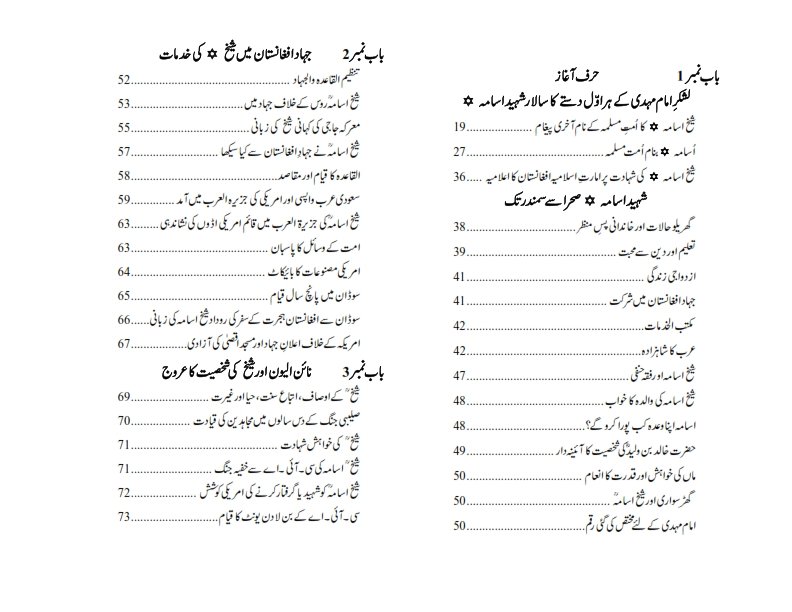 باب نمبر 1 حرف آغاز
لشکرِ امام مہدی کے ہراوّل دستے کا سالار شہید اسامہ ✡
شیخ اسامہ ✡ کا اُمتِ مسلمہ کے نام آخری پیغام ..................... 19
اُسامہ ✡ بنام اُمت مسلمہ ..................... 27
شیخ اسامہ ✡ کی شہادت پر امارتِ اسلامیہ افغانستان کا اعلامیہ ..... 36
شہید اسامہ ✡ صحرا سے سمندر تک
گھریلو حالات اور خاندانی پسِ منظر ..................... 38
تعلیم اور دین سے محبت ..................... 39
ازدواجی زندگی ..................... 41
جہاد افغانستان میں شرکت ..................... 41
مکتب الخدمات ..................... 42
عرب کا شاہزادہ ..................... 42
شیخ اسامہ اور فقہ حنفی ..................... 47
شیخ اسامہ کی والدہ کا خواب ..................... 48
اسامہ اپنا وعدہ کب پورا کرو گے؟ ..................... 48
حضرت خالد بن ولیدؓ کی شخصیت کا آئینہ دار ..................... 49
ماں کی خواہش اور قدرت کا انعام ..................... 50
گھڑ سواری اور شیخ اسامہؒ ..................... 50
امام مہدی کے لئے مختص کی گئی رقم ..................... 50
باب نمبر 2 جہاد افغانستان میں شیخ ✡ کی خدمات
تنظیم القاعدہ والجہاد ..................... 52
شیخ اسامہؒ روس کے خلاف جہاد میں ..................... 53
معرکہ جاجی کی کہانی شیخ کی زبانی ..................... 55
شیخ اسامہؒ نے جہادِ افغانستان سے کیا سیکھا ..................... 57
القاعدہ کا قیام اور مقاصد ..................... 58
سعودی عرب واپسی اور امریکی کی جزیرہ العرب میں آمد ..................... 59
شیخ اسامہؒ کی جزیرۃ العرب میں قائم امریکی اڈوں کی نشاندہی ........ 63
امت کے وسائل کا پاسبان ..................... 63
امریکی مصنوعات کا بائیکاٹ ..................... 64
سوڈان میں پانچ سال قیام ..................... 65
سوڈان سے افغانستان ہجرت کے سفر کی روداد شیخ اسامہ کی زبانی ...... 66
امریکہ کے خلاف اعلانِ جہاد اور مسجد اقصیٰ کی آزادی ..................... 67
باب نمبر 3 نائن الیون اور شیخ کی شخصیت کا عروج
شیخؒ کے اوصاف، اتباع سنت، حیا اور غیرت ..................... 69
صلیبی جنگ کے دس سالوں میں مجاہدین کی قیادت ..................... 70
شیخؒ کی خواہش شہادت ..................... 71
شیخؒ اسامہ کی سی۔آئی۔اے سے خفیہ جنگ ..................... 71
شیخ اسامہؒ کو شہید یا گرفتار کرنے کی امریکی کوشش ..................... 72
سی۔آئی۔اے کے بن لادن یونٹ کا قیام ..................... 73